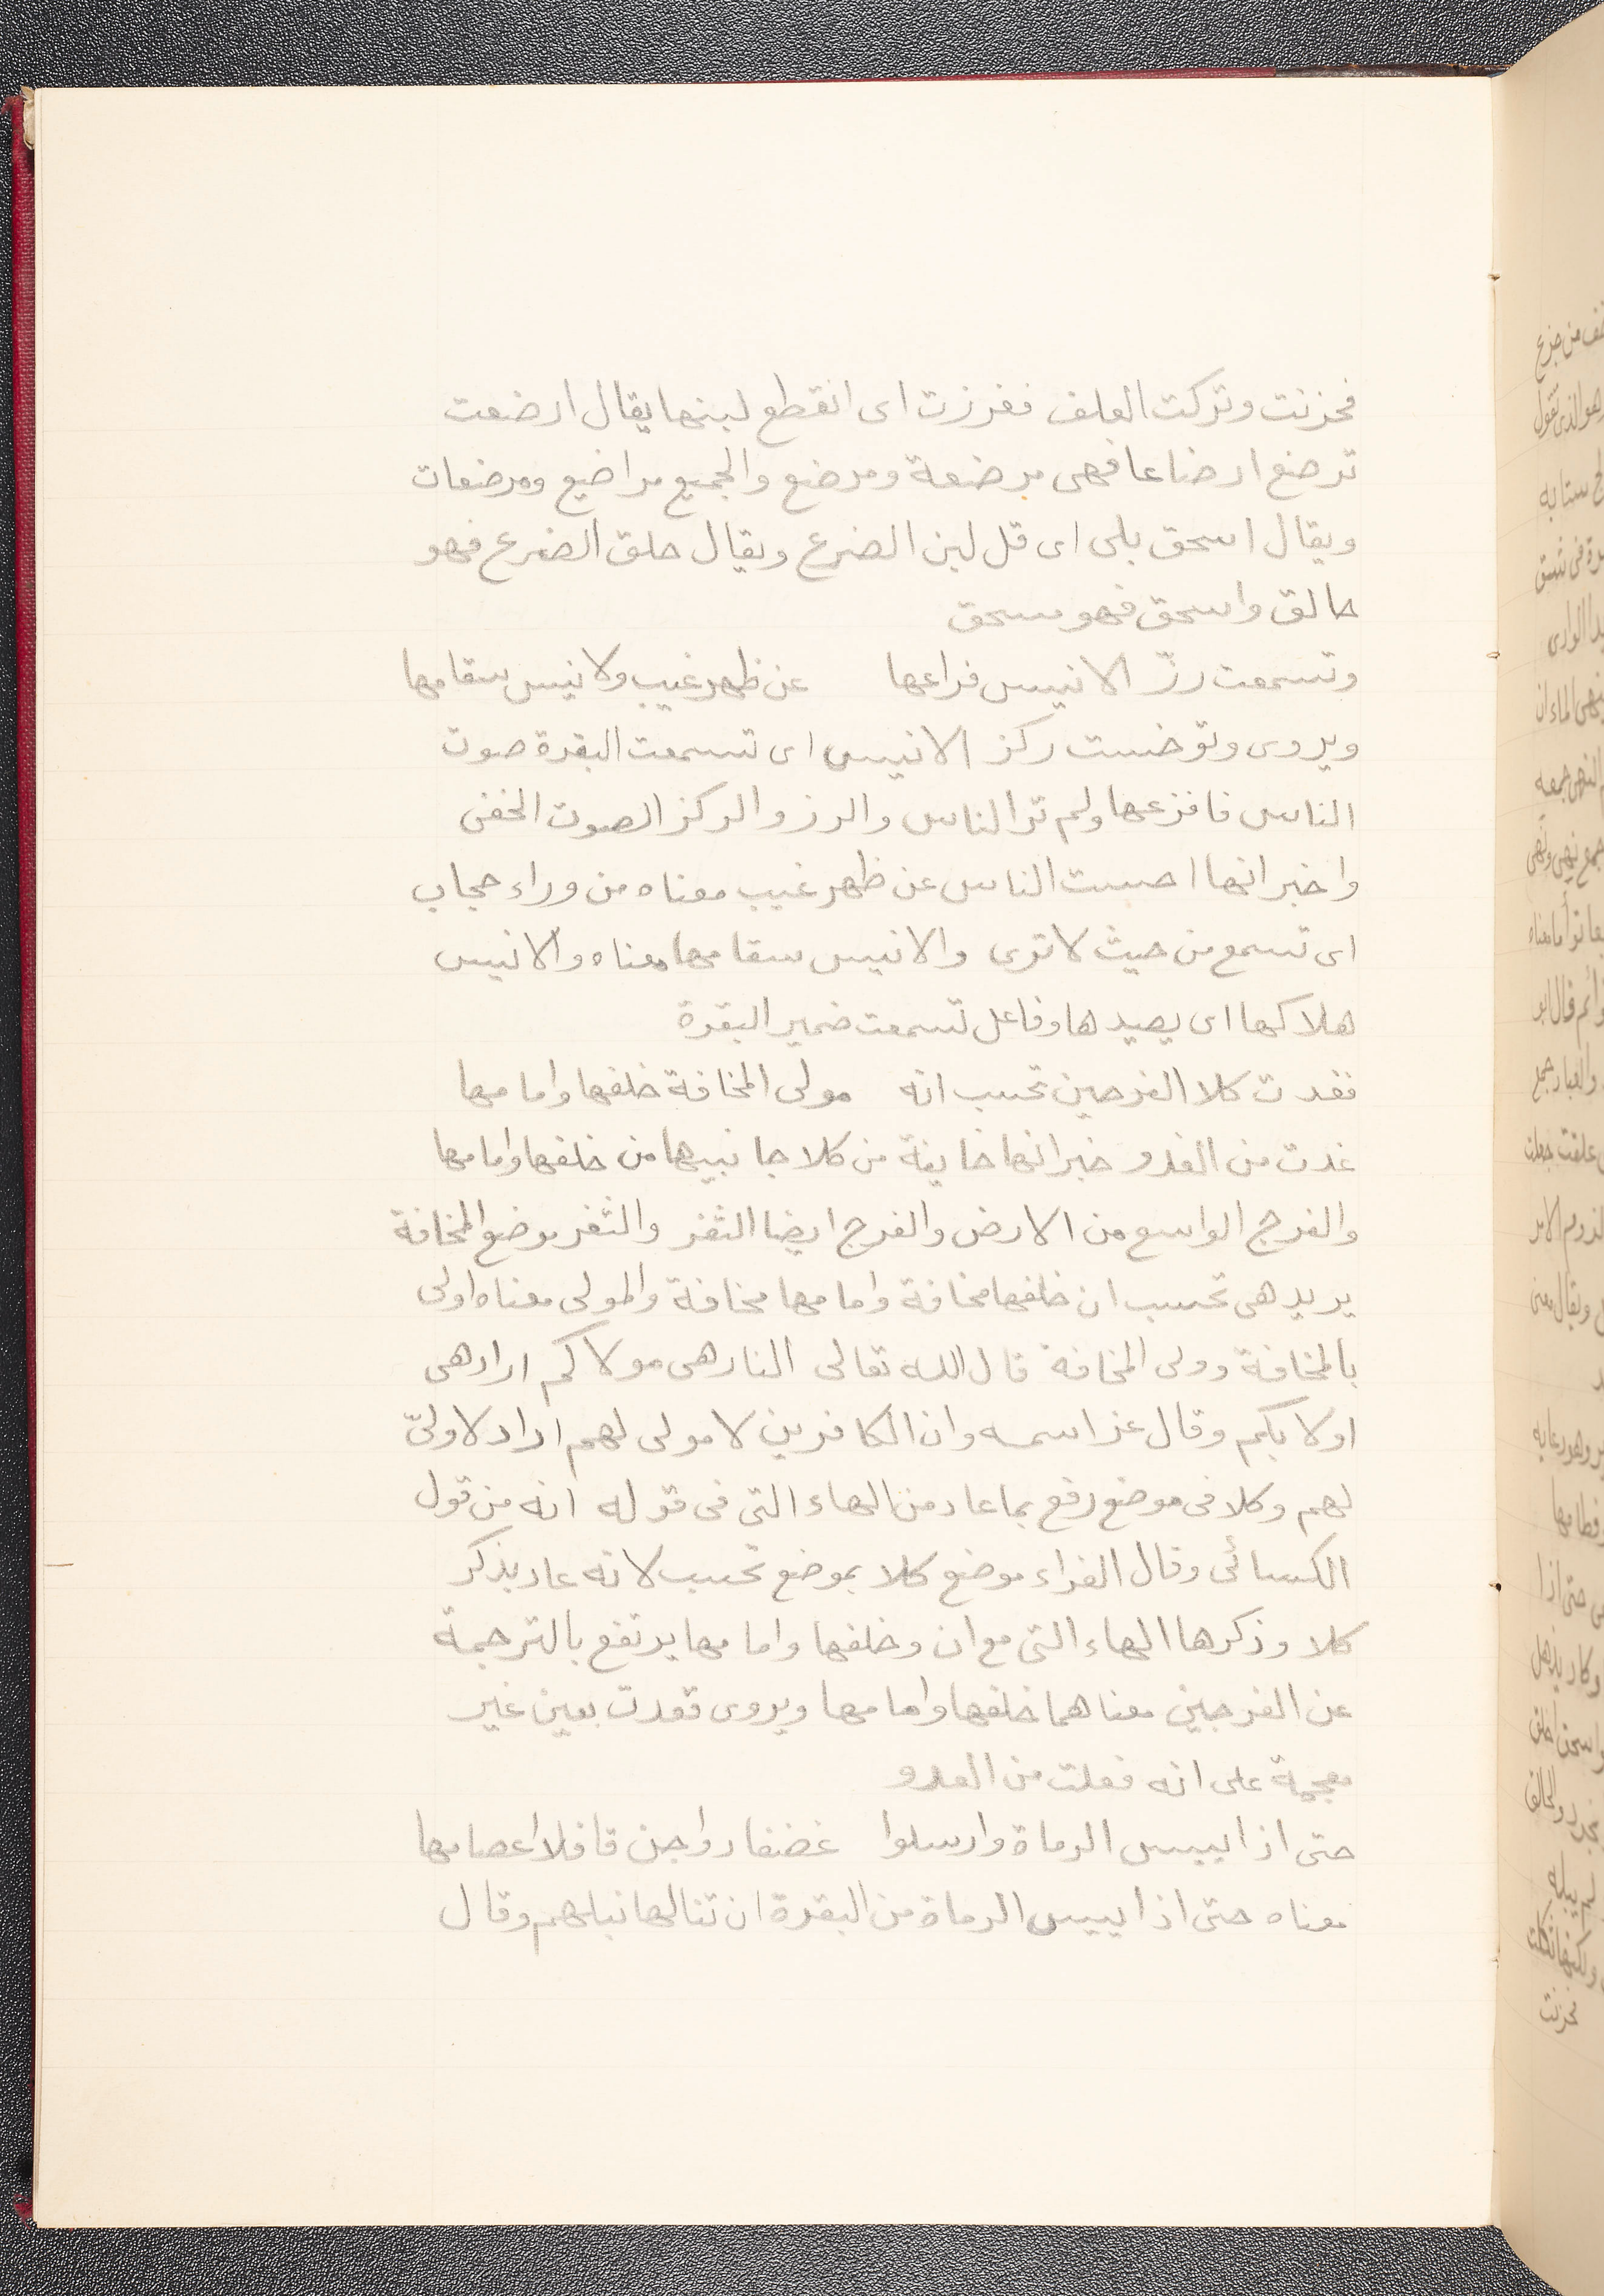 فحزنت وتركت العلف فغرزت اى انقطع لبنها يقال ارضعت
ترضع ارضاعا فهى مرضعة ومرضع والجميع مراضيع ومرضعات
ويقال اسحق بلى اى قل لبن الضرع ويقال حلق الضرع فهو
حالق واسحق فهو مسحق
وتسمعت رزّ الانيس فراعها عن ظهر غيب ولانيس سقامها
ويروى وتوخست ركز الانيس اى تسمعت البقرة صوت
الناس فافزعها ولم تر الناس والرز والركز الصوت الخفى
واخبر انها احست الناس عن ظهر غيب معناه من وراء حجاب
اى تسمع من حيث لا ترى والانيس سقامها معناه والانيس
هلاكها اى يصيدها وفاعل تسمعت ضمير البقرة
فغدت كلا الفرجين تحسب انه مولى المخافة خلفها وامامها
غدت من الغدو خبر انها خايفة من كلا جانبيها من خلفها وامامها
والفرج الواسع من الارض والفرج ايضا الثغر والثغر موضع المخافة
يريد هى تحسب ان خلفها مخافة وامامها مخافة والمولى معناه اولى
بالمخافة وولى المخافة قال الله تعالى النار هى مولاكم اراد هى
اولا بكم وقال عز اسمه وان الكافرين لا مولى لهم اراد لا ولىّ
لهم وكلا فى موضع رفع بما عاد من الهاء التى فى قوله انه من قول
الكسائى وقال الفراء موضع كلا بموضع تحسب لانه عاد بذكر
كلا وذكرها الهاء التى مع ان وخلفها وامامها يرتفع بالترجمة
عن الفرجين معناهما خلفها وامامها ويروى فعدت بعين غير
معجمة على انه فعلت من العدو
حتى اذا اييس الرماة وارسلوا غضفا دواجن قافلا اعصامها
معناه حتى اذا اييس الرماة من البقرة ان تنالها نبلهم وقال